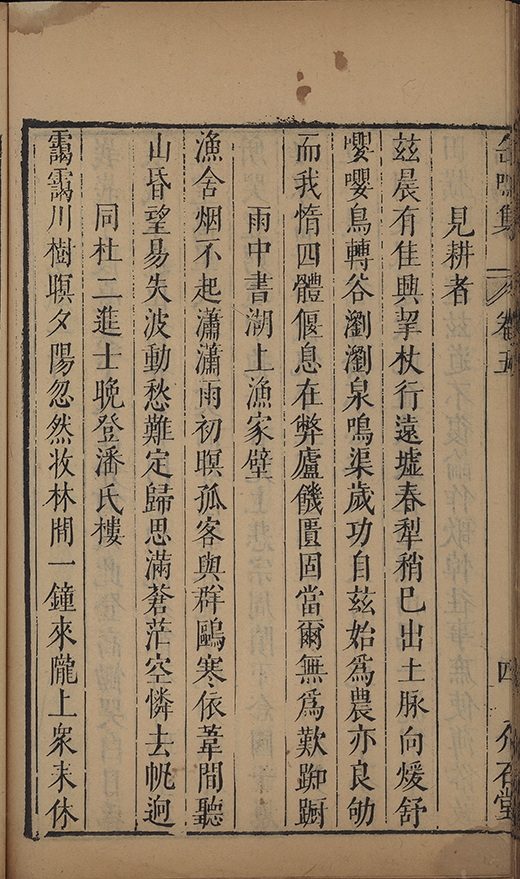 缶鳴集 卷五 四 介石堂
見耕者
兹晨有佳興挈杖行遠墟春犁稍已出土脉向煖舒
嚶嚶鳥轉谷瀏瀏泉鳴渠歲功自兹始爲農亦良劬
而我惰四體偃息在弊廬饑匱固當爾無爲歎踟蹰
雨中書湖上漁家壁
漁舍烟不起瀟瀟雨初暝孤客與群鷗寒依葦間聽
山昏望易失波動愁難定歸思滿蒼茫空憐去帆迥
同杜二進士晚登潘氏樓
靄靄川樹暝夕陽忽然收林間一鐘來隴上衆耒休